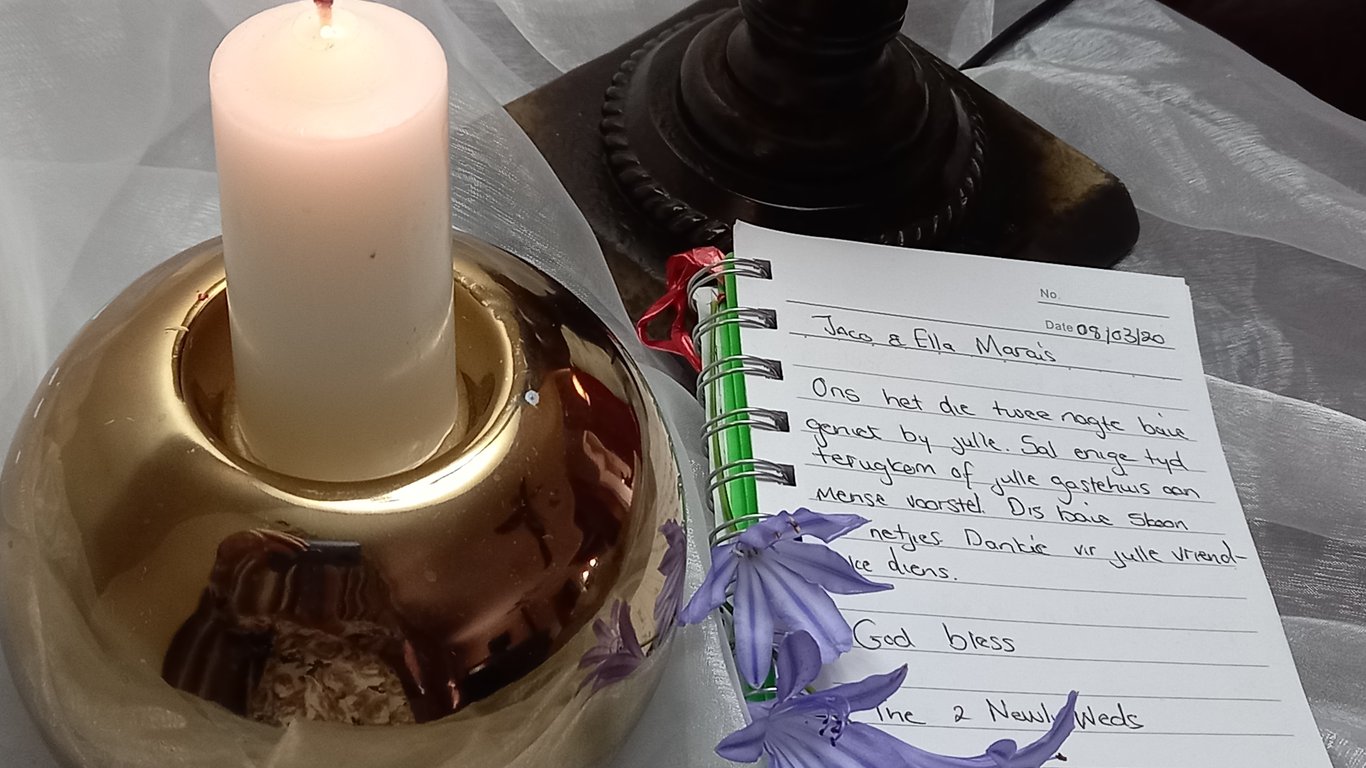 No.
Date 08/03/20
Jaco & Ella Marais
Ons het die twee nagte baie
geniet by julle. Sal enige tyd
terugkom of julle gastehuis aan
mense voorstel. Dis baie skoon
netjies. Dankie vir julle vriend-
ke diens.
God bless
The 2 Newly Weds